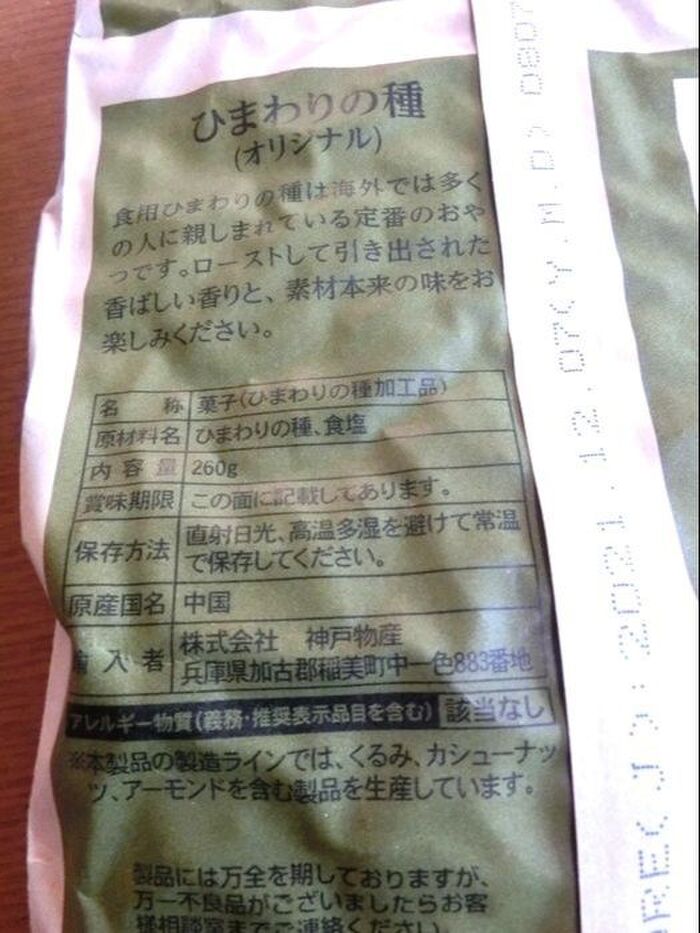 ひまわりの種
(オリジナル)
食用ひまわりの種は海外では多く
の人に親しまれている定番のおや
つです。ローストして引き出された
香ばしい香りと、素材本来の味をお
楽しみください。
名 称 菓子(ひまわりの種加工品)
原材料名 ひまわりの種、食塩
内容量 260g
賞味期限 この面に記載してあります。
保存方法 直射日光、高温多湿を避けて常温
で保存してください。
原産国名 中国
輸入者 株式会社 神戸物産
兵庫県加古郡稲美町中一色883番地
アレルギー物質(義務・推奨表示品目を含む) 該当なし
※本製品の製造ラインでは、くるみ、カシューナッ
ツ、アーモンドを含む製品を生産しています。
製品には万全を期しておりますが、
万一不良品がございましたらお客
様相談室までご連絡ください。
2021.12